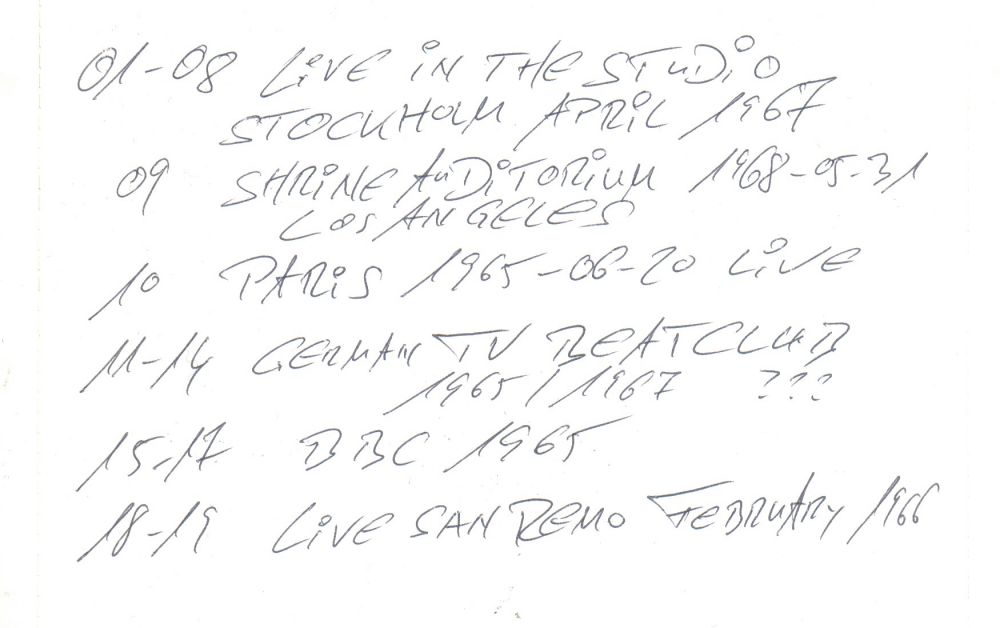 01-08 LiVE iN THE STuDiO
STOCKHOLM APRiL 1967
09 SHRiNE AuDiTORiUM 1968-05-31
LOS ANGELES
10 PARiS 1965-06-20 LiVE
11-14 GERMAN TV BEATCLUB
1965/1967 ???
15-17 BBC 1965
18-19 LiVE SAN REMO FEBRUARY 1966